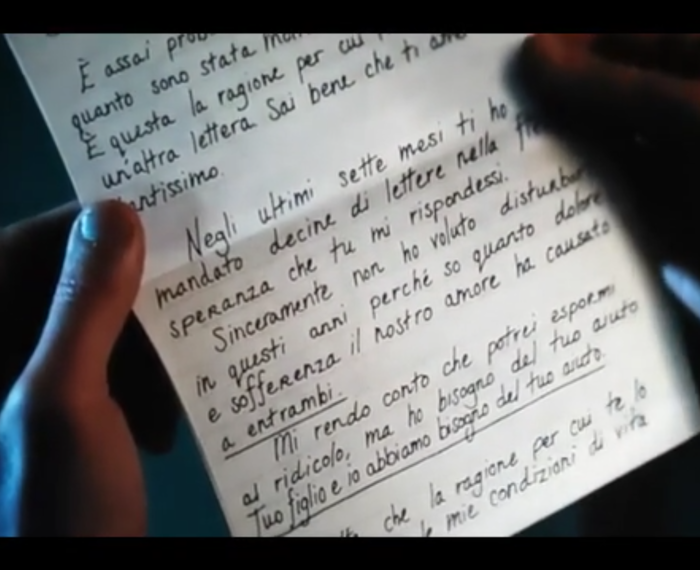 È assai
quanto sono stata
È questa la ragione per cui
un'altra lettera Sai bene che ti
Negli ultimi sette mesi ti ho
mandato decine di lettere nella
speranza che tu mi rispondessi.
Sinceramente non ho voluto
in questi anni perché so quanto dolore
e sofferenza il nostro amore ha causato
a entrambi.
Mi rendo conto che potrei espormi
al ridicolo, ma ho bisogno del tuo aiuto
Tuo figlio e io abbiamo bisogno del tuo aiuto.
che la ragione per cui te lo
mie condizioni di vita